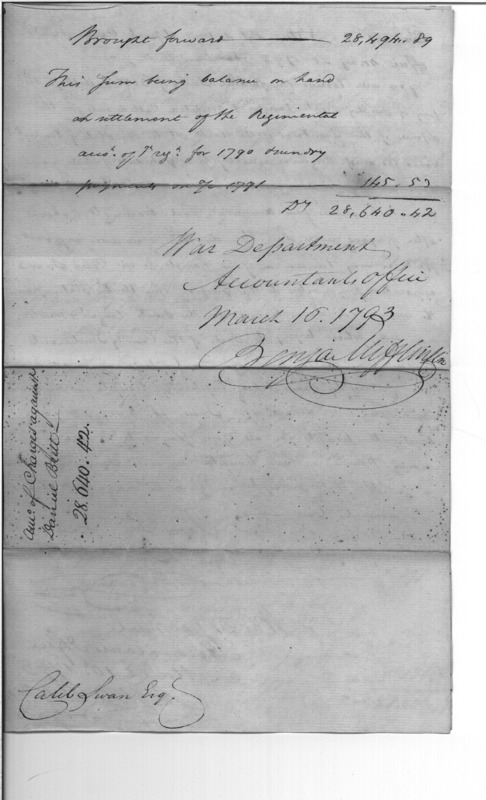 Brought forward — 28,494.89
This sum being balance on hand
at settlement of the Regimental
acco. of 1st regt. for 1790 & sundry
payments on a/c 1791 145.53
Ds 28,640.42
War Department
Accountants Office
March 16. 1793
Benja Mifflin
Amo. of Charges against
Daniel Britt
28.640.42.
Caleb Swan Esqr.